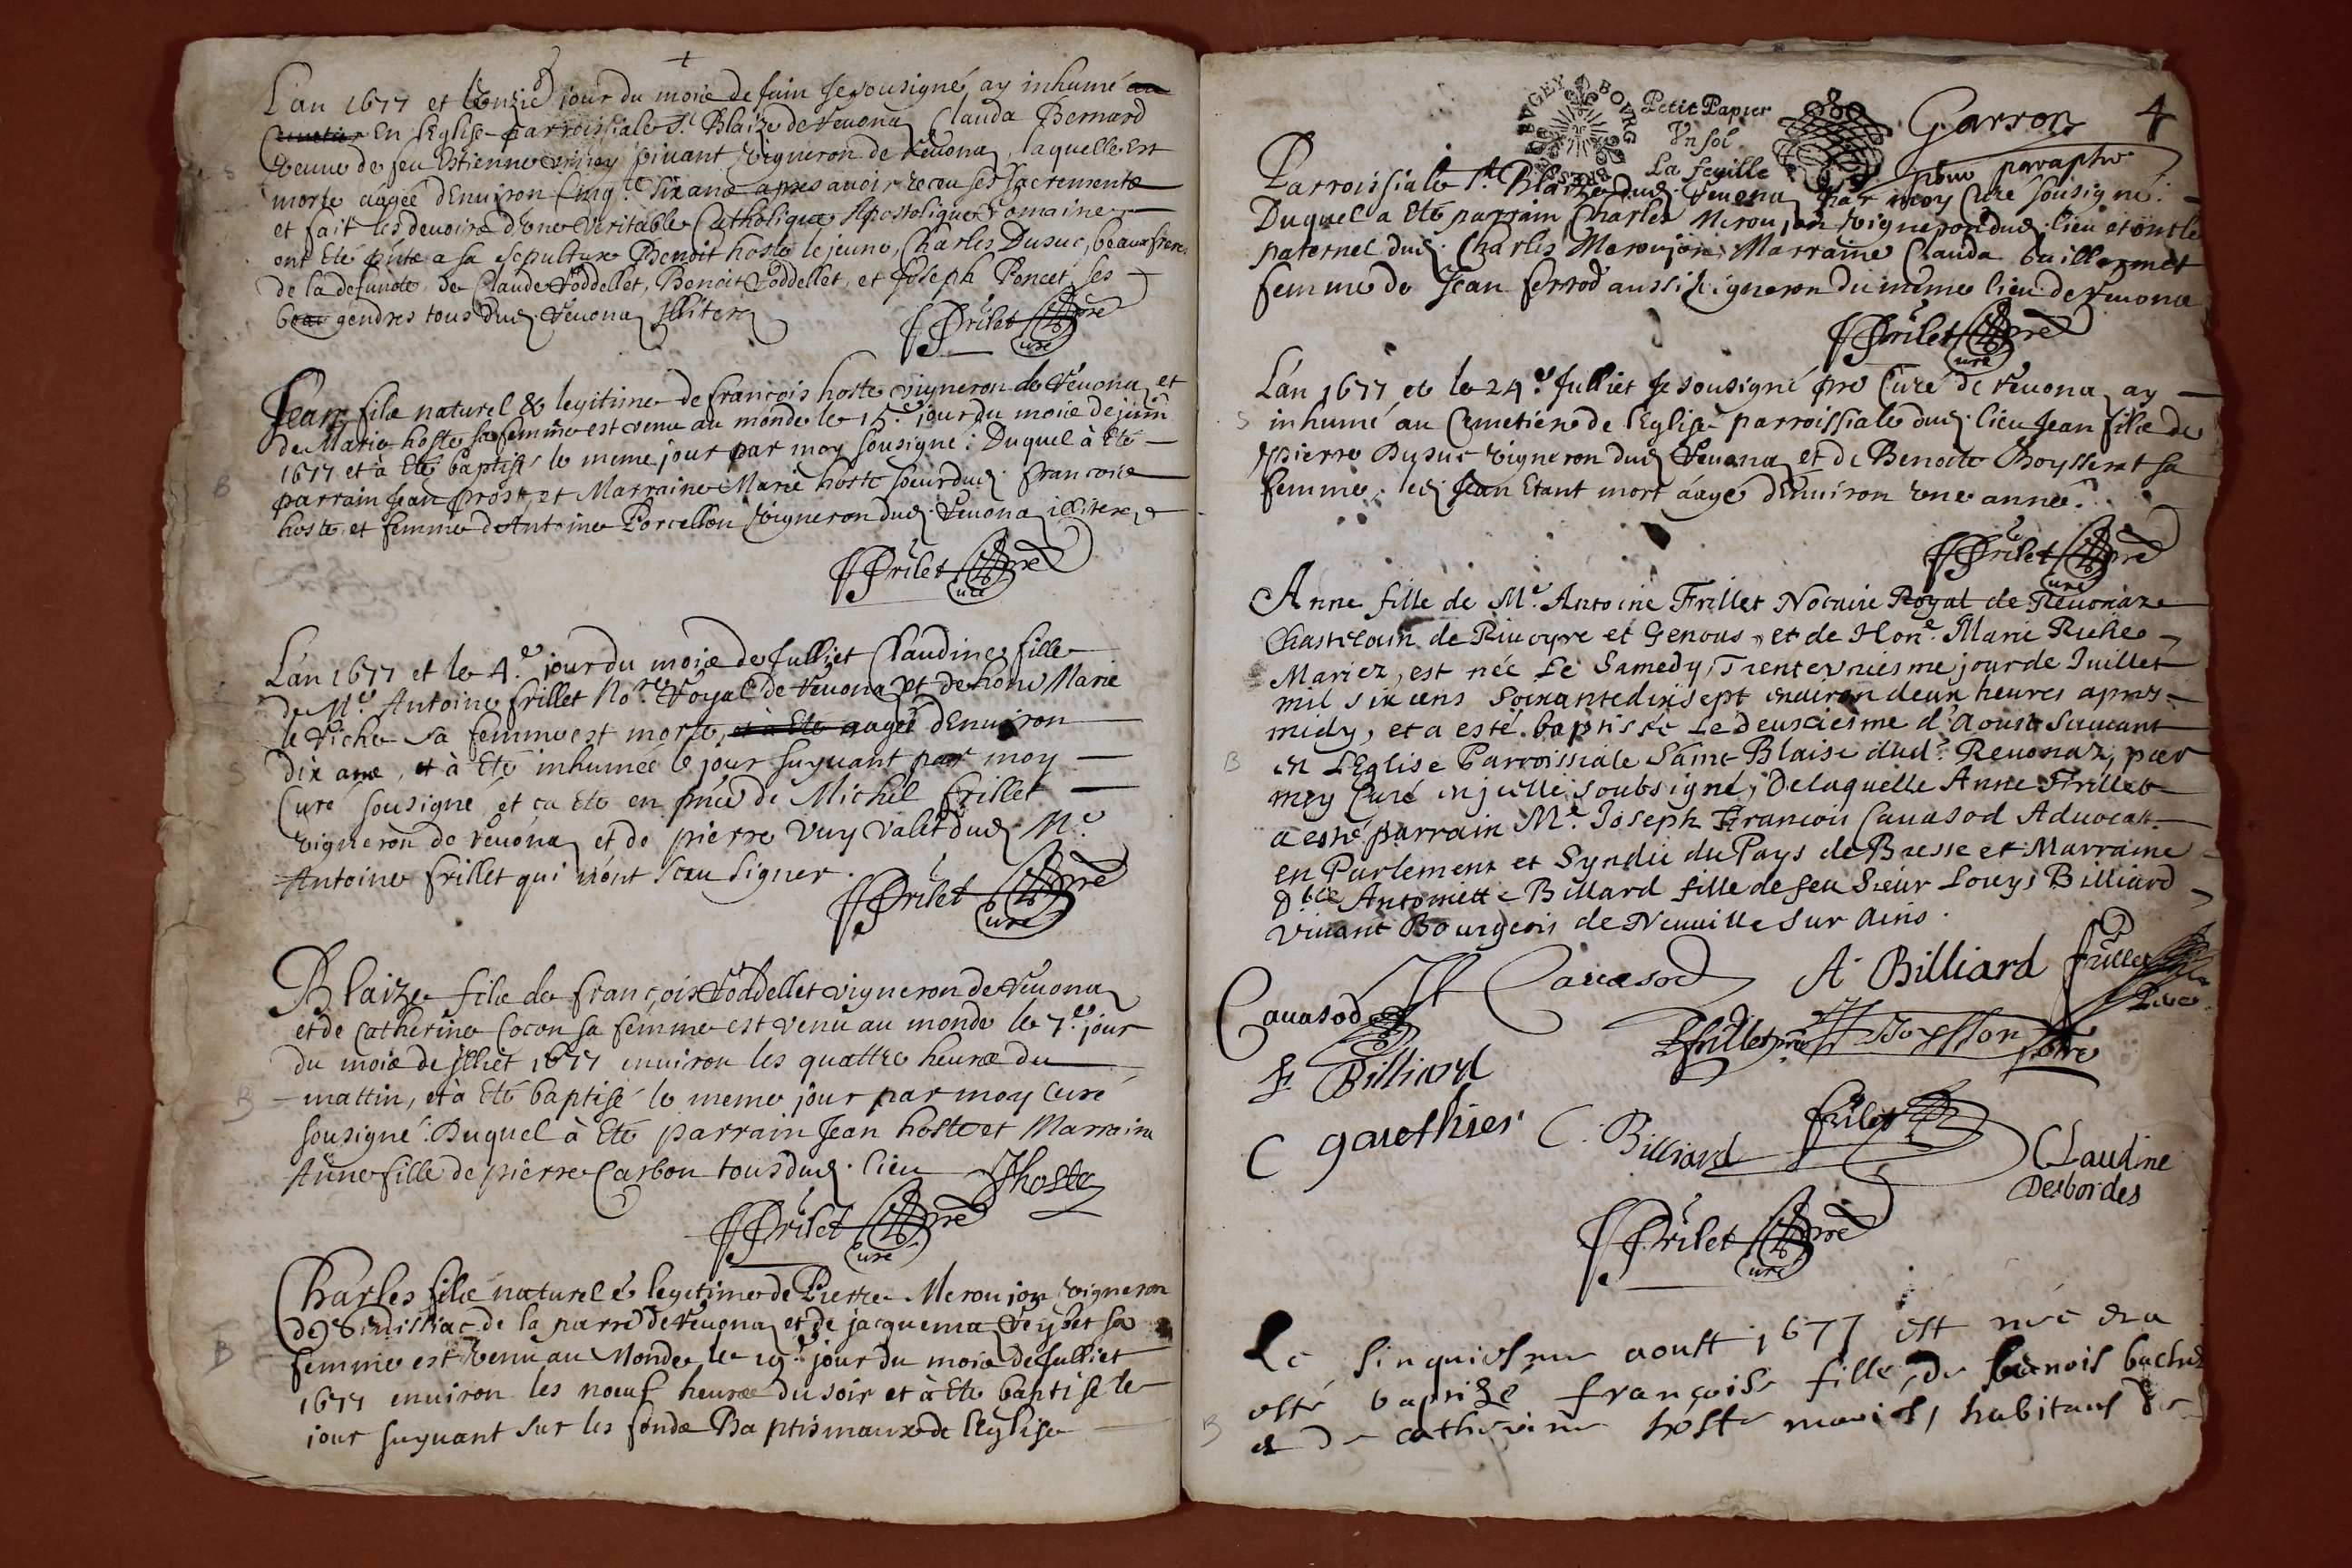 L'an 1677 et le onzie jour du mois de Juin Je sousigné, ay inhumé au
Cemetier En l'Eglise parroissiale St Blaize de Revona, Clauda Bernard
veuve de feu Estienne vivant vigneron de Revona, laquelle Est
morte aagée d'Environ Cinqte six ans apres avoir receu ses sacrements
et fait les devoirs d'une veritable Catholique Apostolique Romaine
ont Eté pnts a sa sepulture Benoit hoste le jeune, Charles Dusuc, beaux frere
de la defuncte, De Claude Roddellet, Benoit Roddellet, et Joseph Poncet ses
beau gendres tous dud. Revona Illiterez
F Frilet pre Curé
Jean fils naturel & legitime de françois hoste vigneron de Revona, et
de Marie hoste sa femme est venu au monde le 15e jour du mois de juin
1677 et à Eté baptisé le meme jour par moy sousigné: Duquel à Eté
parrain Jean prost, et Marraine Marie hoste soeur dud. francois
hoste et femme de Antoine Porcellon vigneron dud. Revona illiterez
F Frilet pre Curé
L'an 1677 et le 4e jour du mois de Julliet Claudine fille
de Me Antoine frillet Nore Royal de Revona et de hone Marie
le Riche sa femme est morte, et à Eté aagée d'Environ
dix ans, et à Eté inhumée le jour suyvant par moy
Curé sousigné et ca Eté en pnce de Michel frillet
vigneron de revona et de pierre vuy valet dud. Me
Antoine frillet qui n'ont sceu signer.
F Frilet pre Curé
Blaize fils de françois Roddellet vigneron de Revona
et de Catherine Cocon sa femme est venu au monde le 7e jour
du mois de Jlliet 1677 environ les quattre heures du
mattin, et à Eté baptisé le meme jour par moy Curé
sousigné. Duquel à Eté parrain Jean hoste et Marraine
Anne fille de pierre Carbon tous dud. lieu
J hoste
F Frilet pre Curé
Charles fils naturel & legitime de Pierre Meroujon vigneron
de de la parre de Revona et de jacquema Reydet sa
femme est venu au Monde, le 19e jour du mois de Julliet
1677 environ les noeuf heures du soir et à Eté baptisé le
jour suyvant sur les fonds Baptismaux de l'Eglise
BVGEY BOVRG BRESSE
Petit Papier
Vn sol
La feuille
Garron 4
pour paraphe
Parroissiale St Blaize dud. Revona par moy Curé sousigné:
Duquel a Eté parrain Charles Meroujon vigneron dud. lieu et oncle
paternel dud. Charles Meroujon; Marraine Clauda Guillermet
femme de Jean ferrod aussi vigneron du meme lieu de Revona
F Frilet pre Curé
L'an 1677 et le 24e Julliet Je sousigné pre Curé de Revona ay
inhumé au Cemetiere de l'Eglise parroissiale dud. lieu Jean fils de
pierre Dusuc vigneron dud Revona et de Benoite Boysseret sa
femme. led. Jean Etant mort aagé d'Environ une anné.
F Frilet pre Curé
Anne fille de Me. Antoine Frillet Notaire Royal de Revonaz
Chastelain de Rivoyre et Genous, et de Hone. Marie Riche
Mariez, est née Le Samedy, Trente vniesme jour de Juillet
mil six cens soixante dixsept environ deux heures apres
midy, et a esté baptisée Le deuxiesme d'Aoust suivant
en L'Eglise Parroissiale Saint Blaise dud.t Revonaz, par
moy Curé enjcelle soubsigné, De laquelle Anne Frillet
a esté parrain Me. Joseph François Cavasod Advocat
en Parlement et Syndic du Pays de Bresse et Marraine
Dlle Antoniette Billard fille de feu Sieur Louys Billiard
vivant Bourgeois de Neuville sur Ains.
Cavasod Cavasod A Billiard frillet
Billiard frillet pre
C gauthier C. Billiard frilet Claudine
Desbordes
F Frilet pre Curé
Le sinquiesme aoust 1677 est née & a
esté baptizé françoise fille de benoist
& de catherine hoste mariés, habitans de